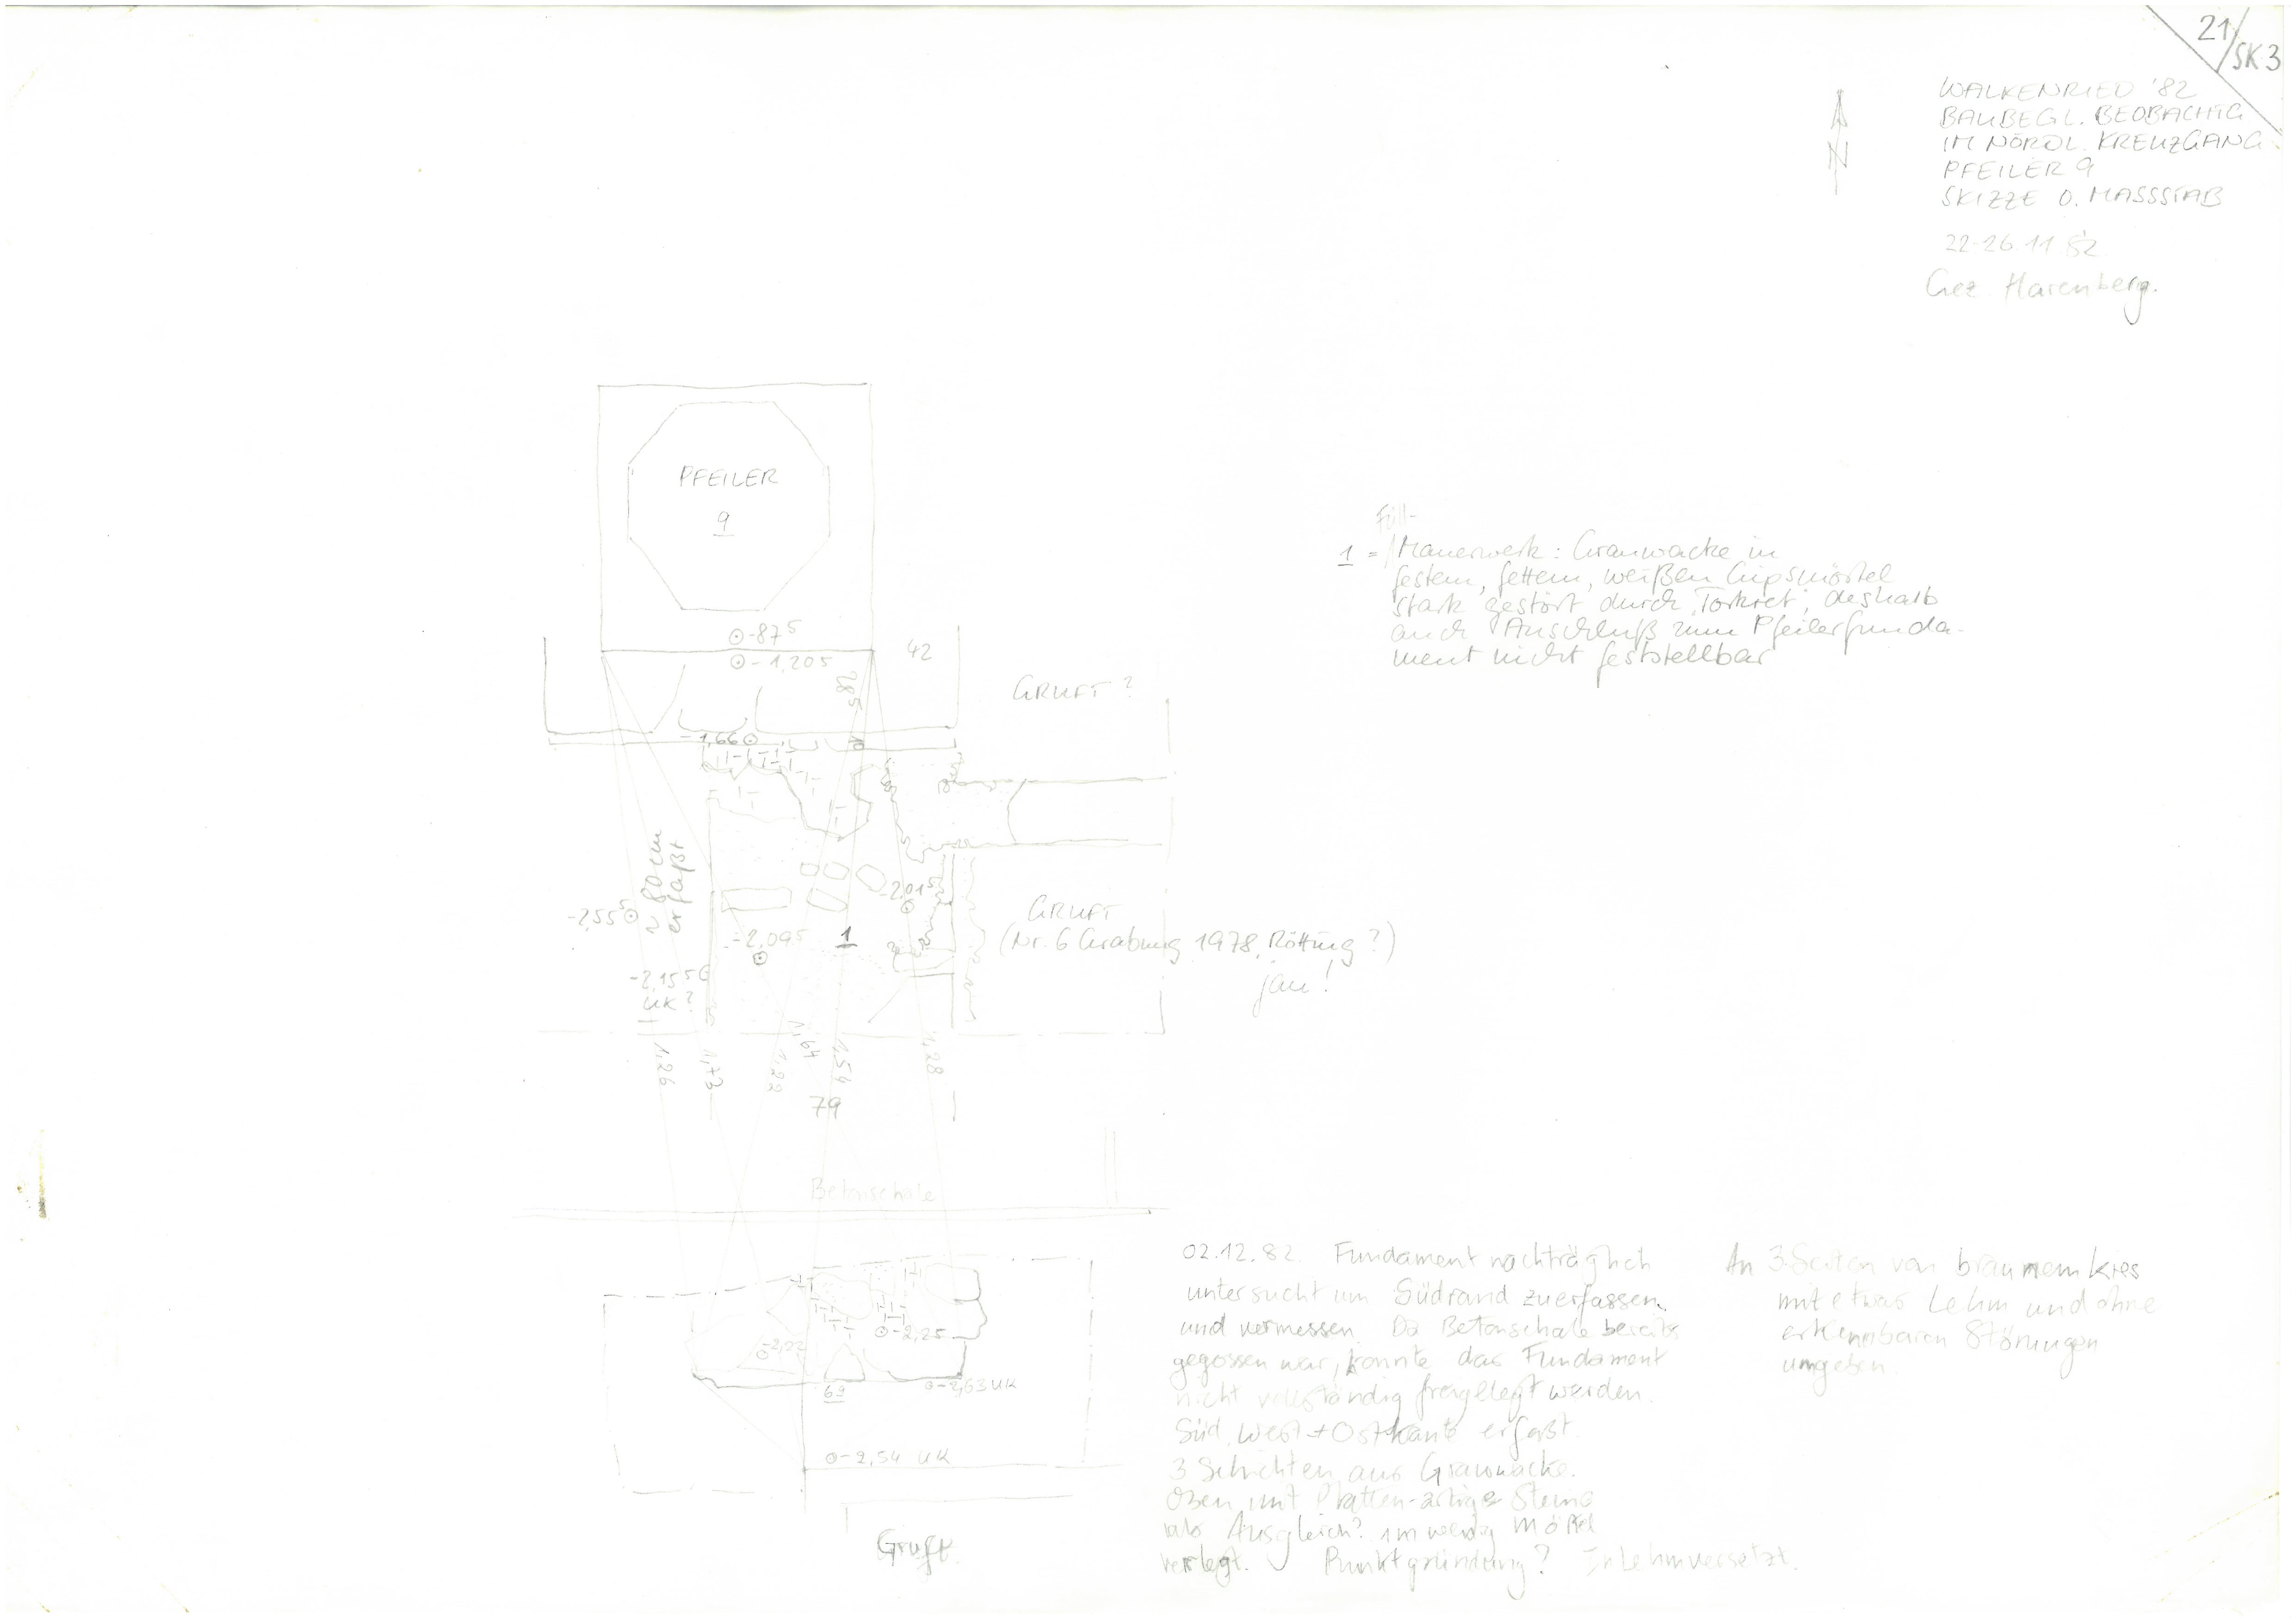 21/SK 3
WALKENRIED '82
BAUBEGL. BEOBACHTG
IM NÖRDL. KREUZGANG
PFEILER 9
SKIZZE O. MASSSTAB
22-26.11.82
Gez. Harenberg.
N
PFEILER
9
-87⁵
-1,205
42
285
GRUFT ?
Füll-
1 = Mauerwerk: Grauwacke in
festem, fettem, weißen Gipsmörtel
stark gestört durch Torkret, deshalb
auch Anschluß zum Pfeilerfunda-
ment nicht feststellbar
-1,66
10
~ 80 cm
erfaßt
-2,55⁵
-2,01⁵
-2,09⁵
1
-2,155
UK ?
GRUFT
(Nr. 6 Grabung 1978, Rötting ?)
jau !
1,26
1,73
1,22
1,64
1,54
1,28
79
Betonschale
-2,22
-2,25
69
-2,63 UK
-2,54 UK
Gruft
02.12.82. Fundament nachträglich
untersucht um Südrand zu erfassen
und vermessen. Da Betonschale bereits
gegossen war, konnte das Fundament
nicht vollständig freigelegt werden.
Süd, West + Ostkante erfaßt.
3 Schichten aus Grauwacke.
Oben mit Platten-artige Steine
als Ausgleich? in wenig Mörtel
verlegt. Punktgründung? In Lehm versetzt.
An 3 Seiten von braunem Kies
mit etwas Lehm und ohne
erkennbaren Störungen
umgeben